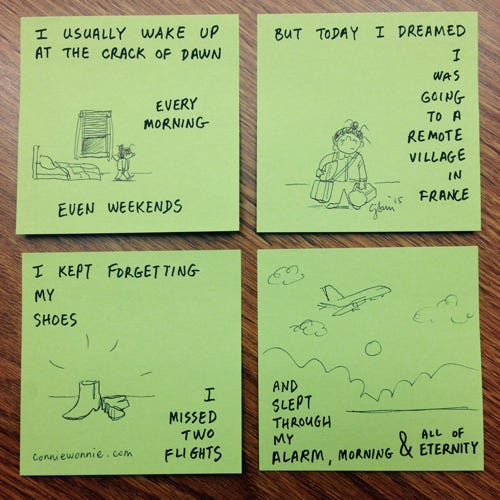 I USUALLY WAKE UP
AT THE CRACK OF DAWN
EVERY
MORNING
EVEN WEEKENDS
BUT TODAY I DREAMED
I
WAS
GOING
TO A
REMOTE
VILLAGE
IN
FRANCE
I KEPT FORGETTING
MY
SHOES
I
MISSED
TWO
FLIGHTS
conniewonnie.com
AND
SLEPT
THROUGH
MY
ALARM, MORNING & ALL OF
ETERNITY